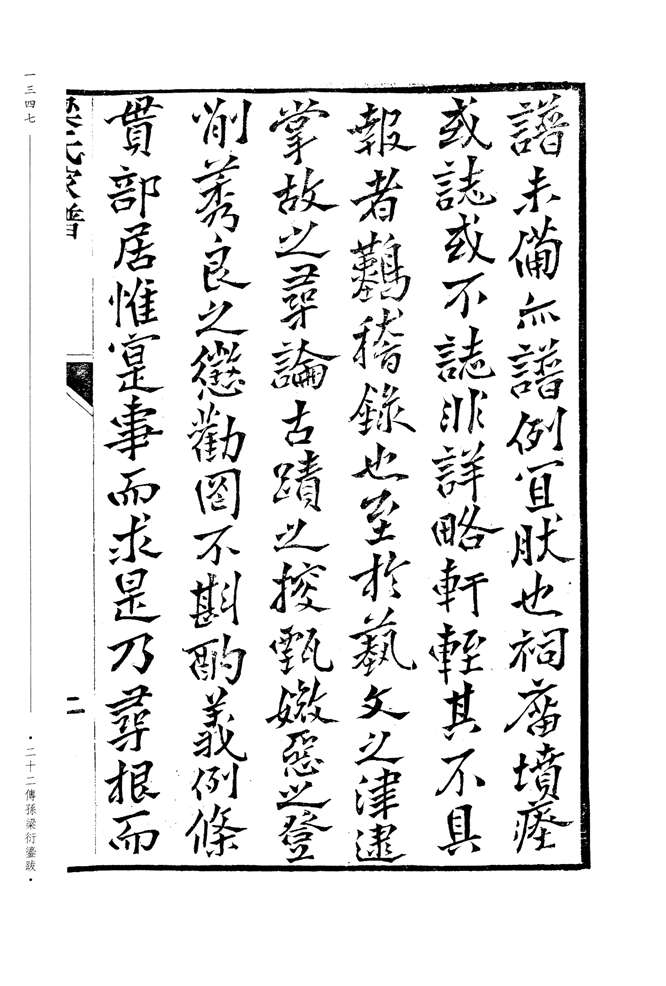 譜未備亦譜例宜肰也祠廇墳瘞
或誌或不誌非詳略軒輊其不具
報者難稽錄也至於藝文之津逮
掌故之尋論古蹟之搜甄媺惡之登
削莠良之懲勸罔不斟酌義例條
貫部居惟寔事而求是乃尋根而
梁氏家譜
二
一三四七
·二十二傳孫梁衍鎏跋·